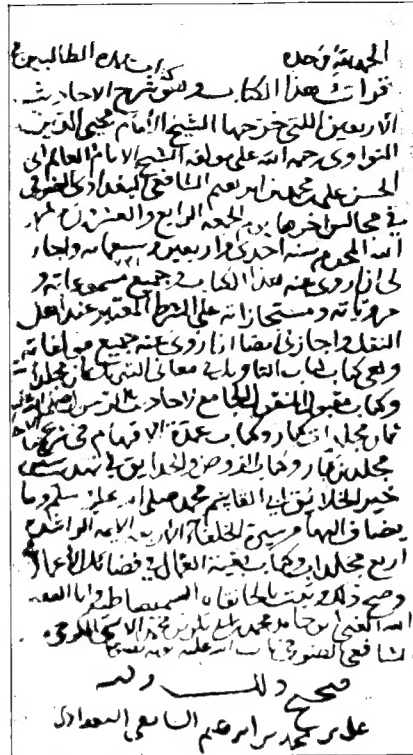 الحمد لله وحده
قرأت هذا الكتاب وهو شرح الاحاديث
الاربعين التي خرجها الشيخ الامام محيي الدين
النواوي رحمه الله على مولفه الشيخ الامام العالم ابي
الحسن علي بن محمد بن ابراهيم الشافعي البغدادي الصوفي
في مجالس اخرها يوم الجمعة الرابع والعشرون من شهر
الله المحرم سنة احدى واربعين وسبعمائة واجاز
لي ان اروي عنه هذا الكتاب وجميع مسموعاته و
مروياته ومستجازاته على الشرط المعتبر عند اهل
النقل واجاز لي ايضا ان اروي عنه جميع مولفاته
وهي كتاب لباب التاويل في معاني التنزيل
وكتاب مقبول المنقول الجامع لاحاديث
ثمان مجلدات كبار وكتاب عمدة الافهام في شرح
مجلدين كبار وكتاب الروض والحدايق في تهذيب سيرة
خير الخلائق ابي القاسم محمد صلى الله عليه وسلم وما
يضاف اليها من سيرة الخلفاء الاربعة الايمة الراشدين
اربع مجلدات وكتاب بغية العمال في فضائل الاعمال
وصح ذلك وثبت بالخانقاه السميساطية وانا الفقير
الى الله الغني ابو حامد محمد
الشافعي الصوفي
صحيح ذلك وكتبه
علي بن محمد بن ابراهيم الشافعي البغدادي